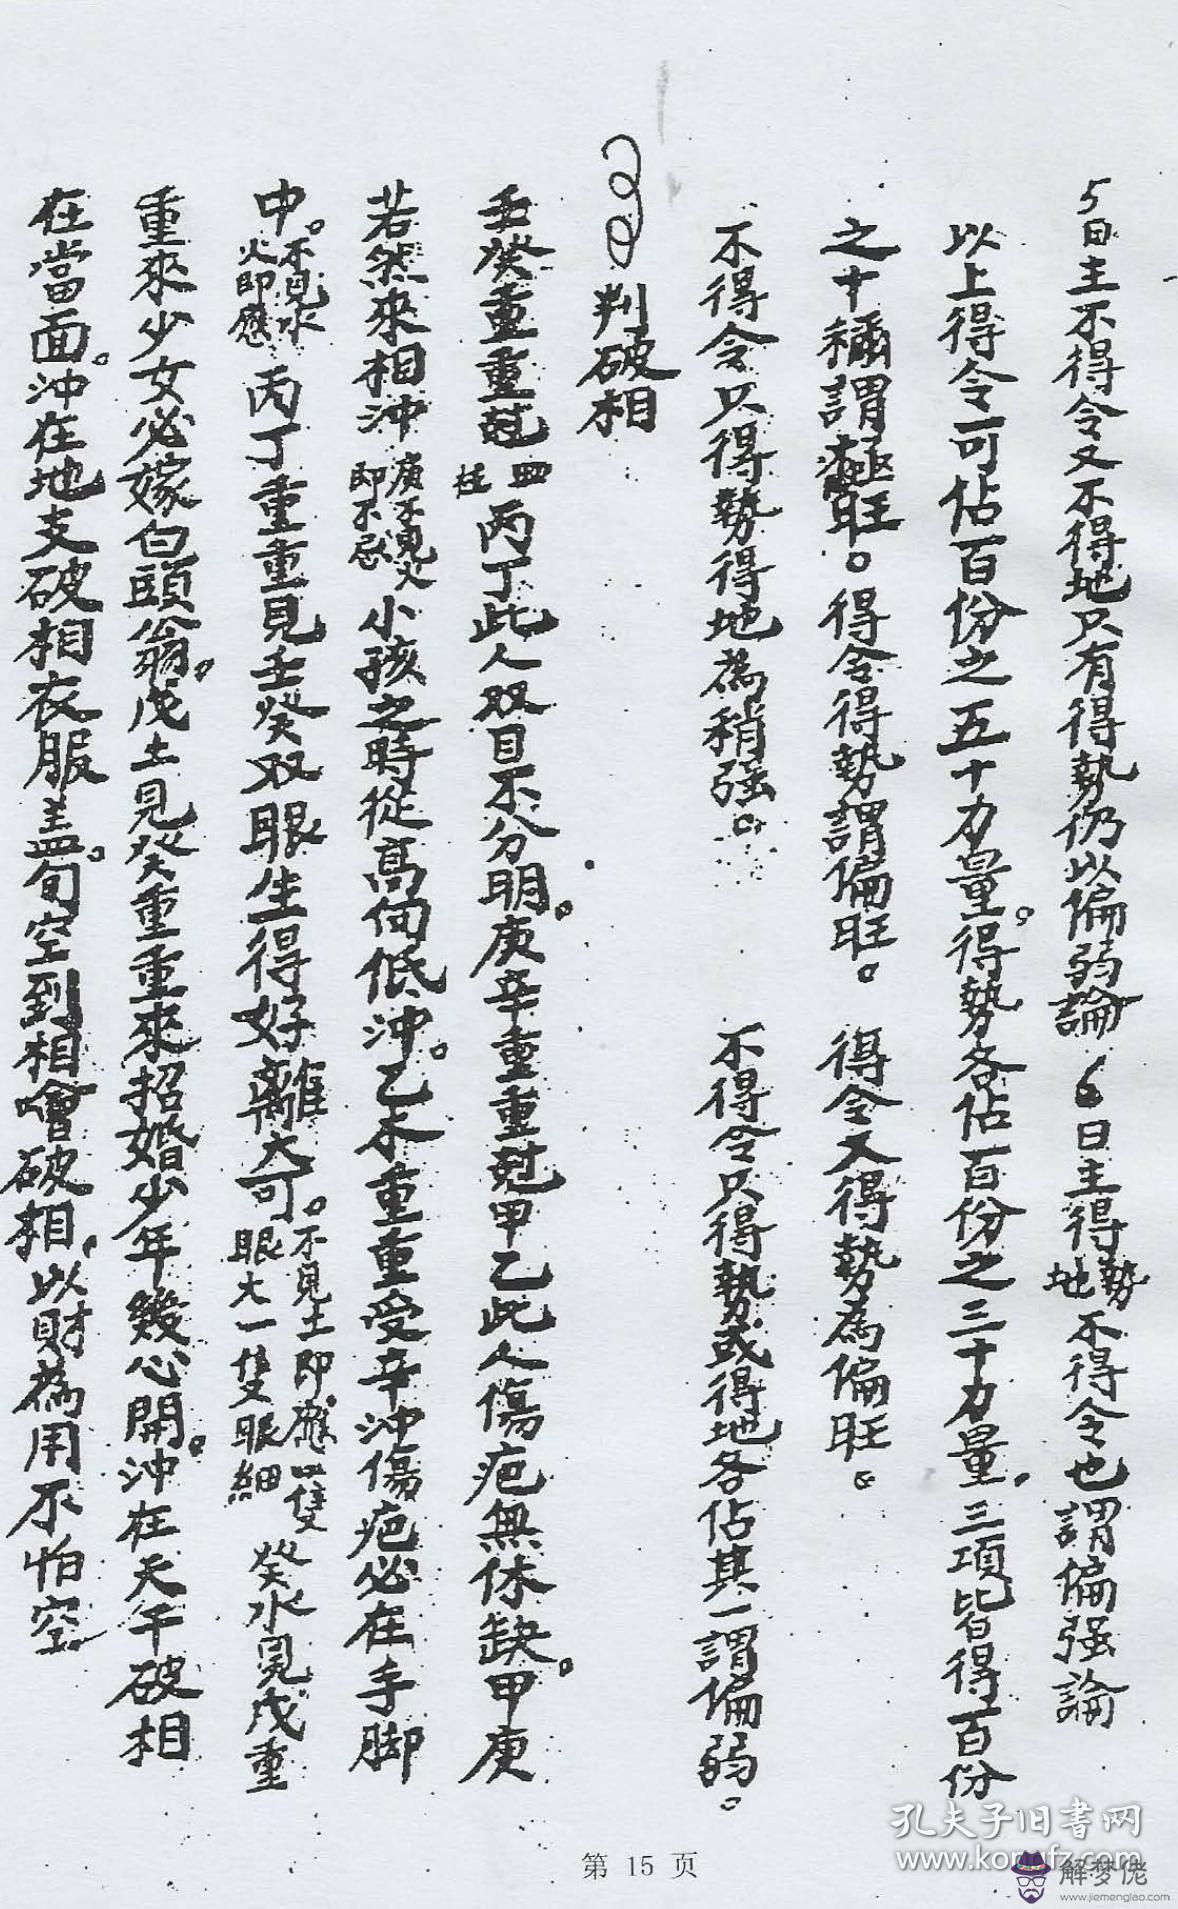 5日主不得令又不得地只有得勢仍以偏弱論 6日主得勢地不得令也謂偏强論
以上得令可佔百份之五十力量。得勢各佔百份之三十力量，三項皆得百份
之十稱謂極旺。得令得勢謂偏旺。 得令又得勢為偏旺。
不得令只得勢得地為稍强。 不得令只得勢或得地各佔其一謂偏弱。
判破相
壬癸重重尅四柱丙丁此人双目不分明。庚辛重重尅甲乙此人傷疤無休缺。甲庚
若然來相沖庚不見火即不忌小孩之時從高向低沖。乙木重重受辛沖傷疤必在手脚
中。不見水火即應丙丁重重見壬癸双眼生得好離大可。不見土即應一隻眼大一隻眼細癸水見戊重
重來少女必嫁白頭翁。戊土見癸重重來招婚少年幾心開。沖在天干破相
在當面。沖在地支破相衣服盖。旬空到相會破相，以財為用不怕空
第 15 页
孔夫子旧书网
www.kongfz.com
解梦佬
www.jiemenglao.com